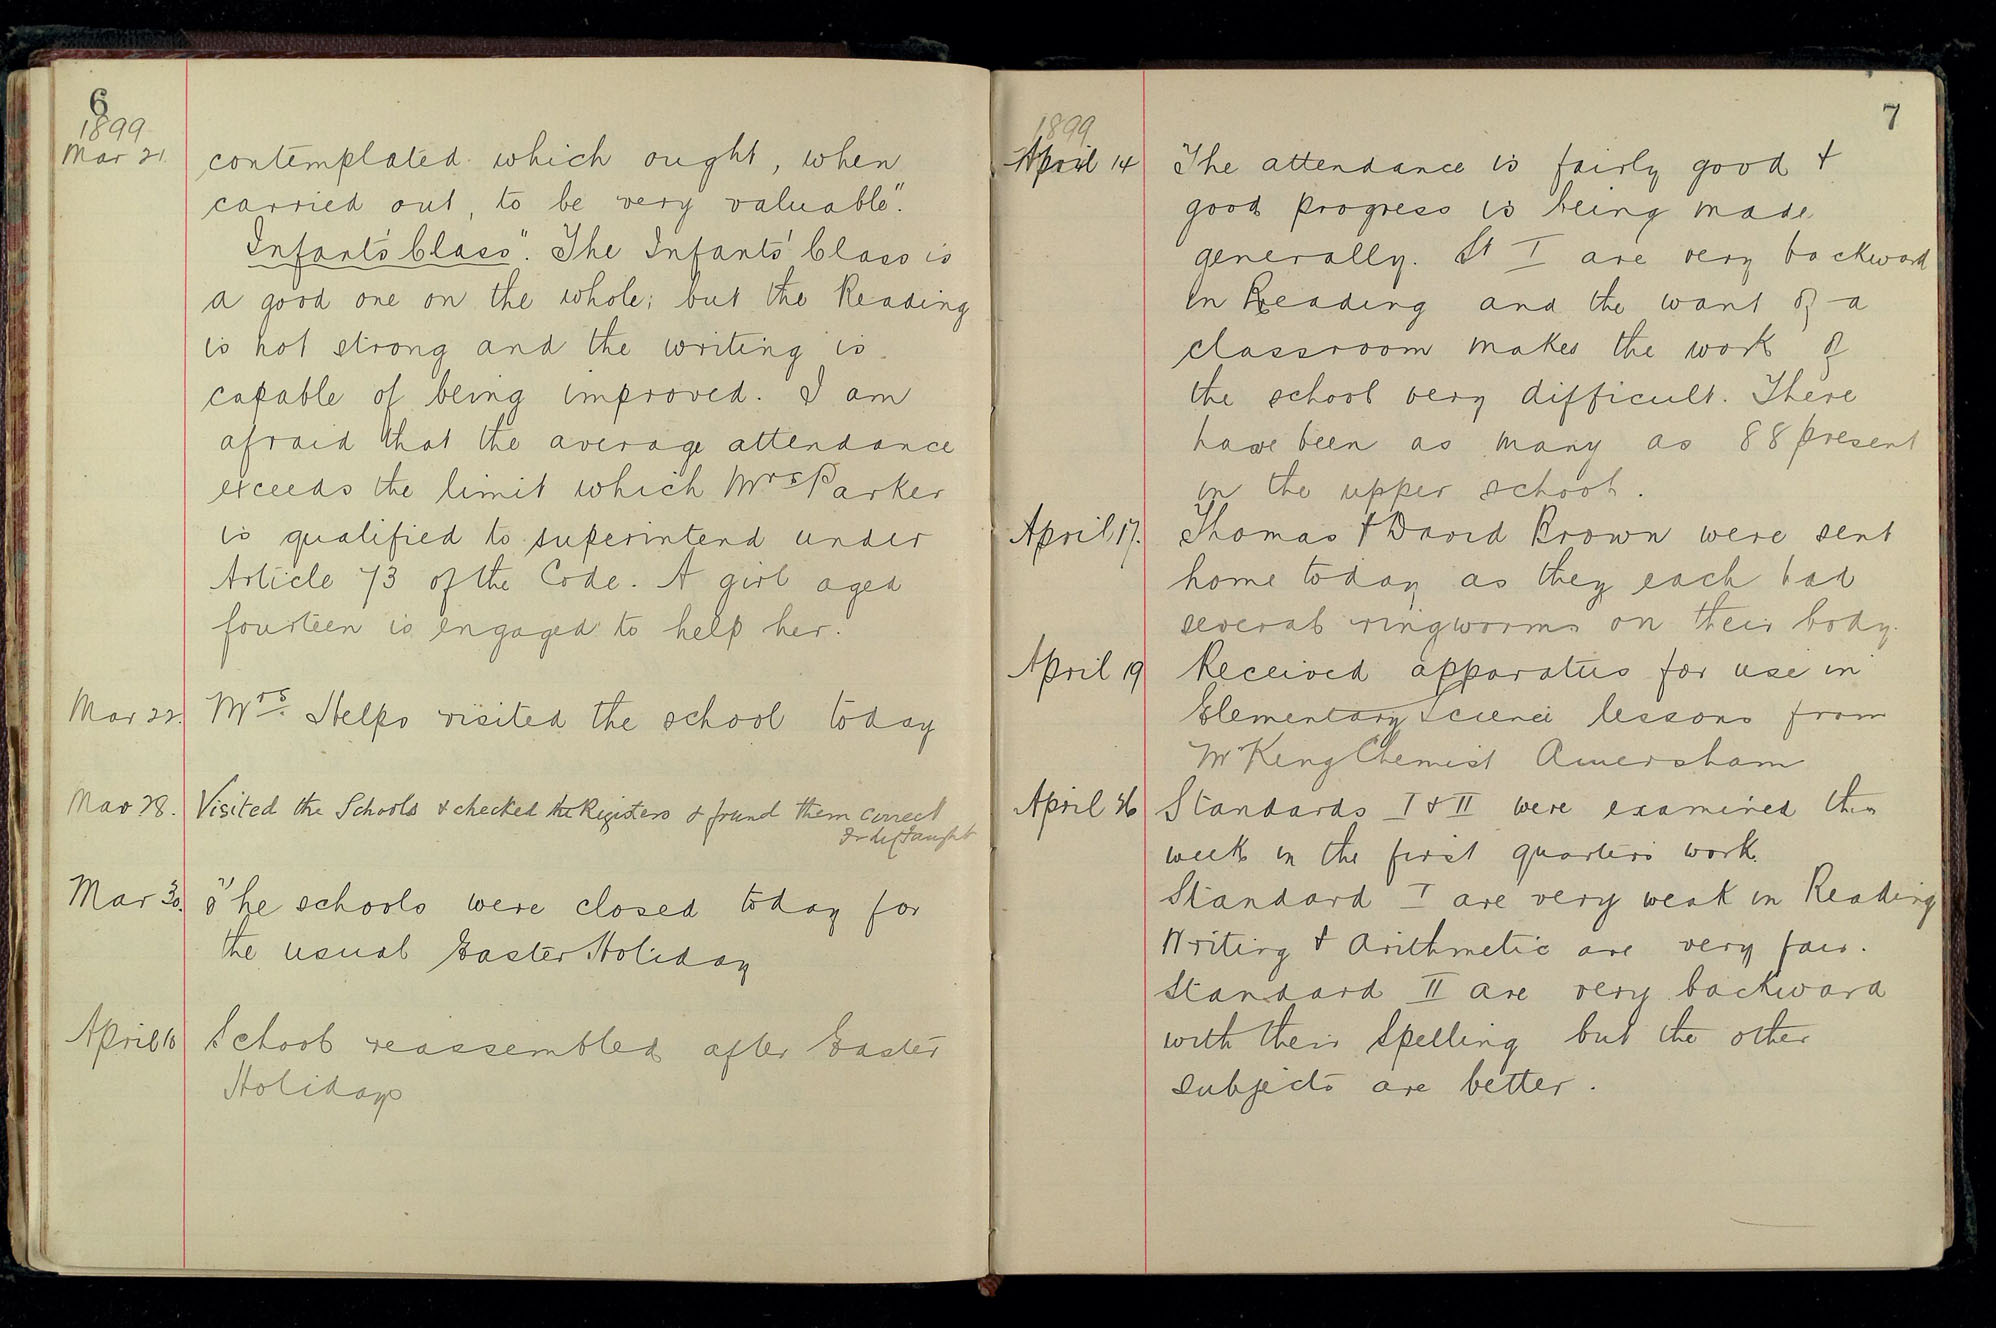 6
1899
Mar 21. contemplated which ought, when
carried out, to be very valuable".
"Infants' Class". The Infants' Class is
a good one on the whole; but the Reading
is not strong and the writing is
capable of being improved. I am
afraid that the average attendance
exceeds the limit which Mrs Parker
is qualified to superintend under
Article 73 of the Code. A girl aged
fourteen is engaged to help her.
Mar 22. Mrs. Helps visited the school today
Mar 28. Visited the Schools & checked the Registers & found them correct
Mar 30. The schools were closed today for
the usual Easter Holiday
April 10 School reassembled after Easter
Holidays
7
1899
April 14 The attendance is fairly good &
good progress is being made
generally. St I are very backward
in Reading and the want of a
classroom makes the work of
the school very difficult. There
have been as many as 88 present
in the upper school.
April 17. Thomas & David Brown were sent
home today as they each had
several ringworms on their body.
April 19 Received apparatus for use in
Elementary Science lessons from
Mr King Chemist Amersham
April 26 Standards I & II were examined this
week in the first quarters work.
Standard I are very weak in Reading
Writing & Arithmetic are very fair.
Standard II are very backward
with their Spelling but the other
subjects are better.